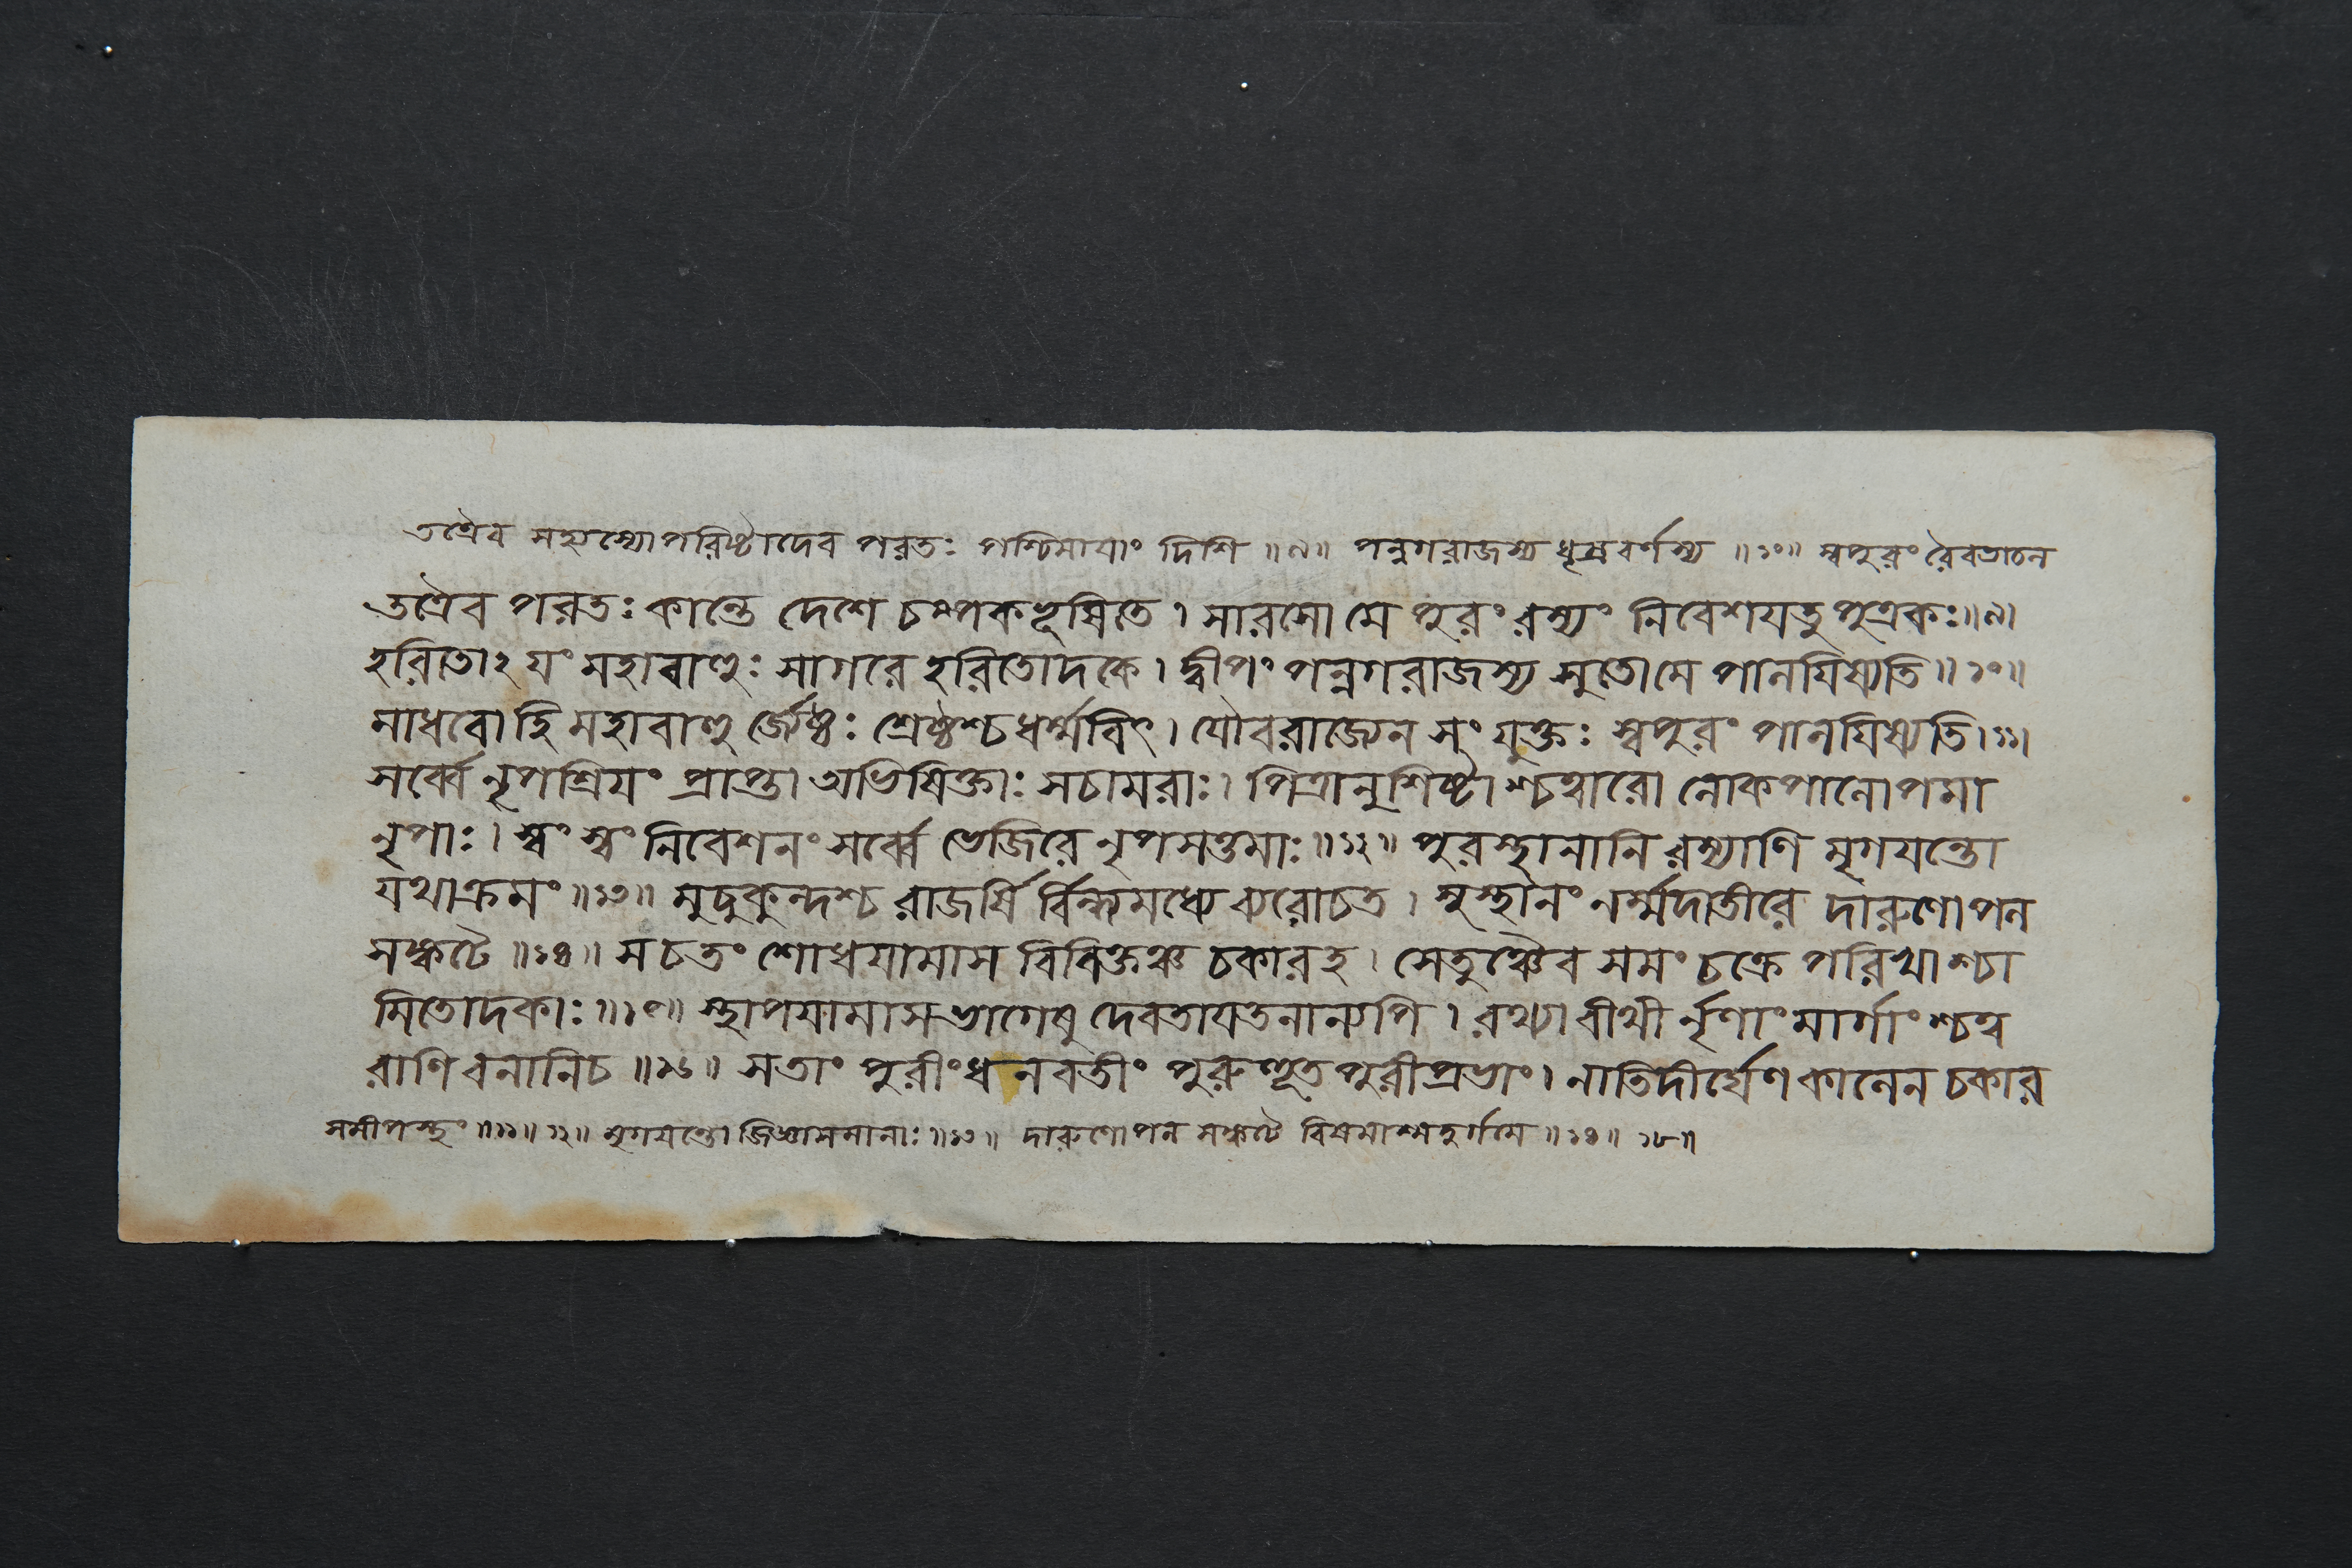 তত্রৈব সহ্যস্যোপরিষ্টাদেব পরতঃ পশ্চিমাযাং দিশি ॥৯॥ পন্নগরাজস্য ধূম্রবর্ণস্য ॥১০॥ স্বপুরং রৈবতাচল
তত্রৈব পরতঃ কান্তে দেশে চম্পকভূষিতে। সারসো মে পুরং রম্যং নিবেশযতু পুত্রকঃ॥৯।
হরিতোঽযং মহাবাহুঃ সাগরে হরিতোদকে। দ্বীপং পন্নগরাজস্য সুতো মে পালযিষ্যতি॥১০॥
মাধবো হি মহাবাহু র্জ্যেষ্ঠঃ শ্রেষ্ঠশ্চ ধর্ম্মবিৎ। যৌবরাজ্যেন সংযুক্তঃ স্বপুরং পালযিষ্যতি।১১।
সর্ব্বে নৃপশ্রিযং প্রাপ্তা অভিষিক্তাঃ সচামরাঃ। পিত্রানুশিষ্টাশ্চত্বারো লোকপালোপমা
নৃপাঃ। স্বং স্বং নিবেশনং সর্ব্বে ভেজিরে নৃপসত্তমাঃ॥১২॥ পুরস্থানানি রম্যাণি মৃগযন্তো
যথাক্রমং॥১৩॥ মুচুকুন্দশ্চ রাজর্ষি র্বিন্ধ্যমধ্যে ব্যরোচত। সুস্থানং নর্ম্মদাতীরে দারুণোপল
সঙ্কটে॥১৪॥ স চ তং শোধযামাস বিবিক্তঞ্চ চকার হ। সেতুঞ্চৈব সমং চক্রে পরিখাশ্চা
মিতোদকাঃ॥১৫॥ স্থাপযামাস ভাগেষু দেবতাযতনান্যপি। রথ্যা বীথী র্নৃণাং মার্গাংশ্চত্ব
রাণি বনানি চ॥১৬॥ স তাং পুরীং ধনবতীং পুরুহূতপুরীপ্রভাং। নাতিদীর্ঘেণ কালেন চকার
সমীপস্থং॥১১॥১২॥ মৃগযন্তো জিজ্ঞাসমানাঃ॥১৩॥ দারুণোপল সঙ্কটে বিষমাশ্মদুর্গমে॥১৪॥ ১৮॥